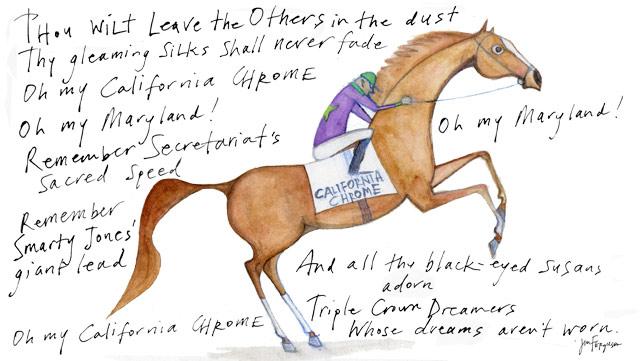 Thou Wilt Leave the Others in the dust
Thy gleaming Silks Shall never fade
Oh my California CHROME
Oh my Maryland!
Remember Secretariat's
Sacred Speed
Remember
Smarty Jones'
giant lead
Oh my California CHROME
Oh my Maryland!
CALIFORNIA
CHROME
And all thy black-eyed Susans
adorn
Triple Crown Dreamers
Whose dreams aren't worn.
Jen Ferguson